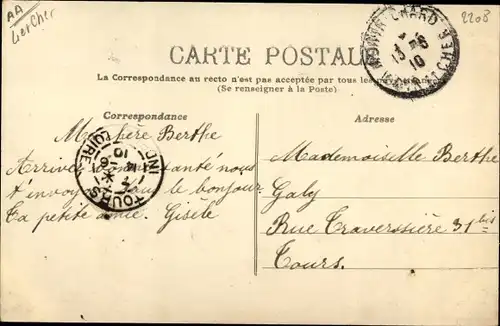 AA
Loir Cher
2208
CARTE POSTALE
La Correspondance au recto n'est pas acceptée par tous les pays
(Se renseigner à la Poste)
Correspondance
Ma chère Berthe
Arrivez bonne santé nous
t'envoyons tous le bonjour
Ta petite amie. Gisèle
TOURS
INDRE
LOIRE
Adresse
Mademoiselle Berthe
Galy
Rue Traversière 31 bis
Tours.
13-6
10
CHER